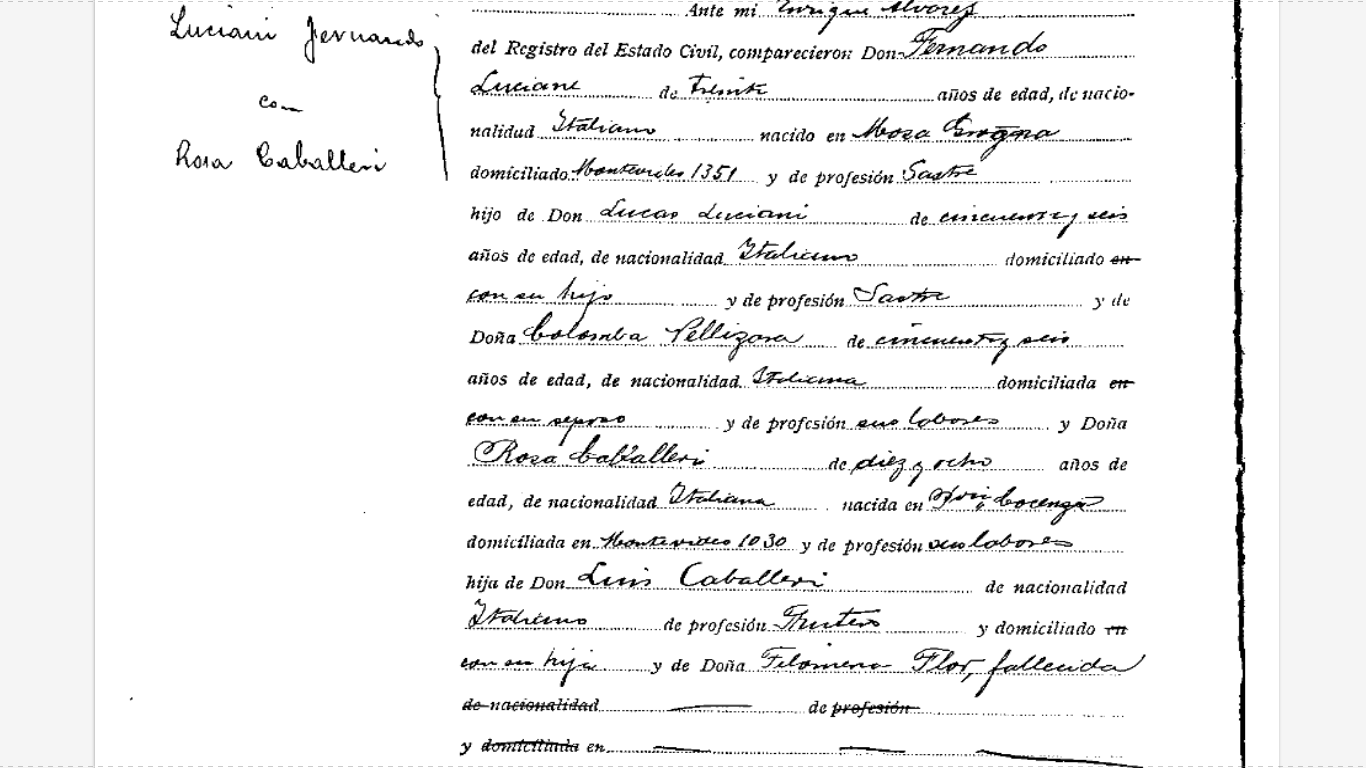 Luciani Fernando
con
Rosa Caballeri
Ante mi Enrique Alvarez
del Registro del Estado Civil, comparecieron Don Fernando
Luciane de treinta años de edad, de nacio-
nalidad Italiano nacido en Mosa
domiciliado Montevideo 1351 y de profesión Sastre
hijo de Don Lucas Luciani de cincuenta y seis
años de edad, de nacionalidad Italiano domiciliado en
con su hijo y de profesión Sastre y de
Doña Colomba Pellizara de cincuenta y seis
años de edad, de nacionalidad Italiana domiciliada en
con su esposo y de profesión sus labores y Doña
Rosa Caballeri de diez y ocho años de
edad, de nacionalidad Italiana nacida en Cocenza
domiciliada en Montevideo 1030 y de profesión sus labores
hija de Don Luis Caballeri de nacionalidad
Italiano de profesión Frutero y domiciliado en
con su hija y de Doña Filomena Flor, fallecida
de nacionalidad de profesión
y domiciliada en